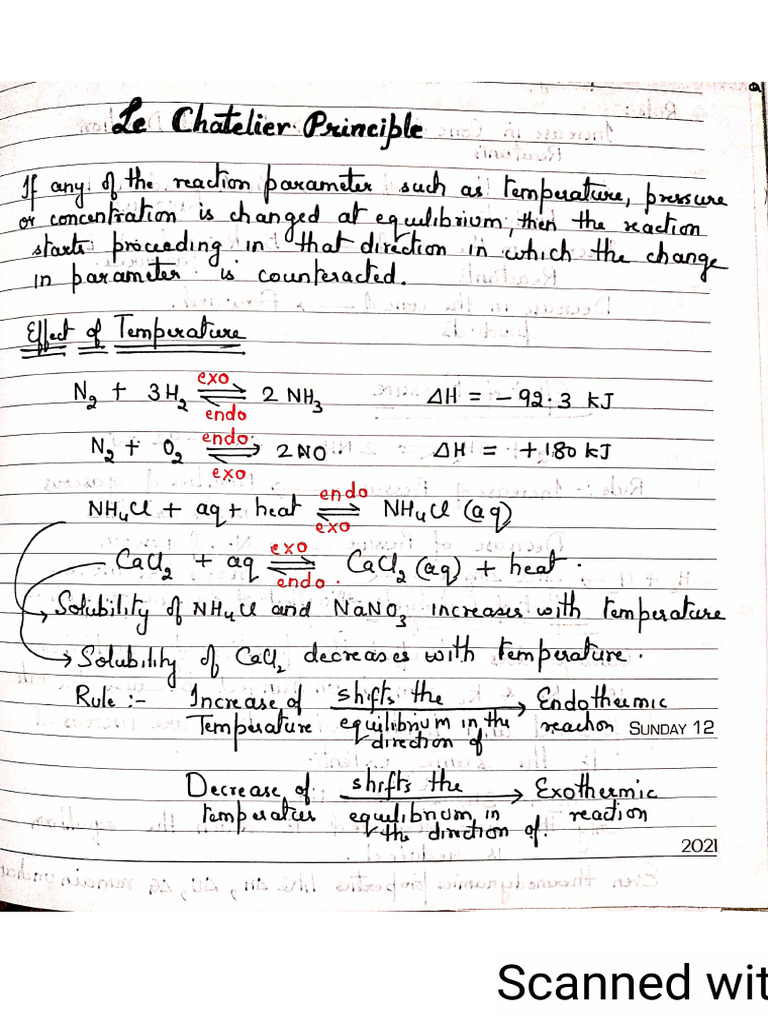 Le Chatelier Principle
If any of the reaction parameter such as temperature, pressure
or concentration is changed at equilibrium, then the reaction
starts proceeding in that direction in which the change
in parameter is counteracted.
Effect of Temperature
N₂ + 3H₂ exo ⇌ endo 2 NH₃ ΔH = - 92.3 kJ
N₂ + O₂ endo ⇌ exo 2NO ΔH = +180 kJ
NH₄Cl + aq + heat endo ⇌ exo NH₄Cl (aq)
CaCl₂ + aq exo ⇌ endo CaCl₂ (aq) + heat.
→ Solubility of NH₄Cl and NaNO₃ increases with temperature
→ Solubility of CaCl₂ decreases with temperature.
Rule :- Increase of shifts the → Endothermic
Temperature equilibrium in the reaction SUNDAY 12
direction of
Decrease of shifts the → Exothermic
temperature equilibrium in reaction
the direction of.
2021
Scanned wit